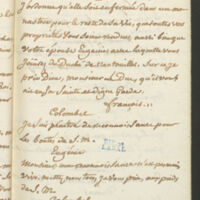 J'ordonne qu'elle soit enfermée dans un mo-
nastère pour le reste de sa vie, que toutes vos
propriétés vous soient rendues, ainsi que
votre épouse Eugénie avec laquelle vous
jouirez du Duché de Sur ce je
prie Dieu, monsieur le Duc, qu'il vous
ait en sa Sainte et digne Garde.
François...
Colombet
Je suis pénétré de reconnaissance pour
les bontés de S. M.
Eugénie
Monsieur ma reconnaissance
mettez moi je vous prie, aux pieds
de S. M.